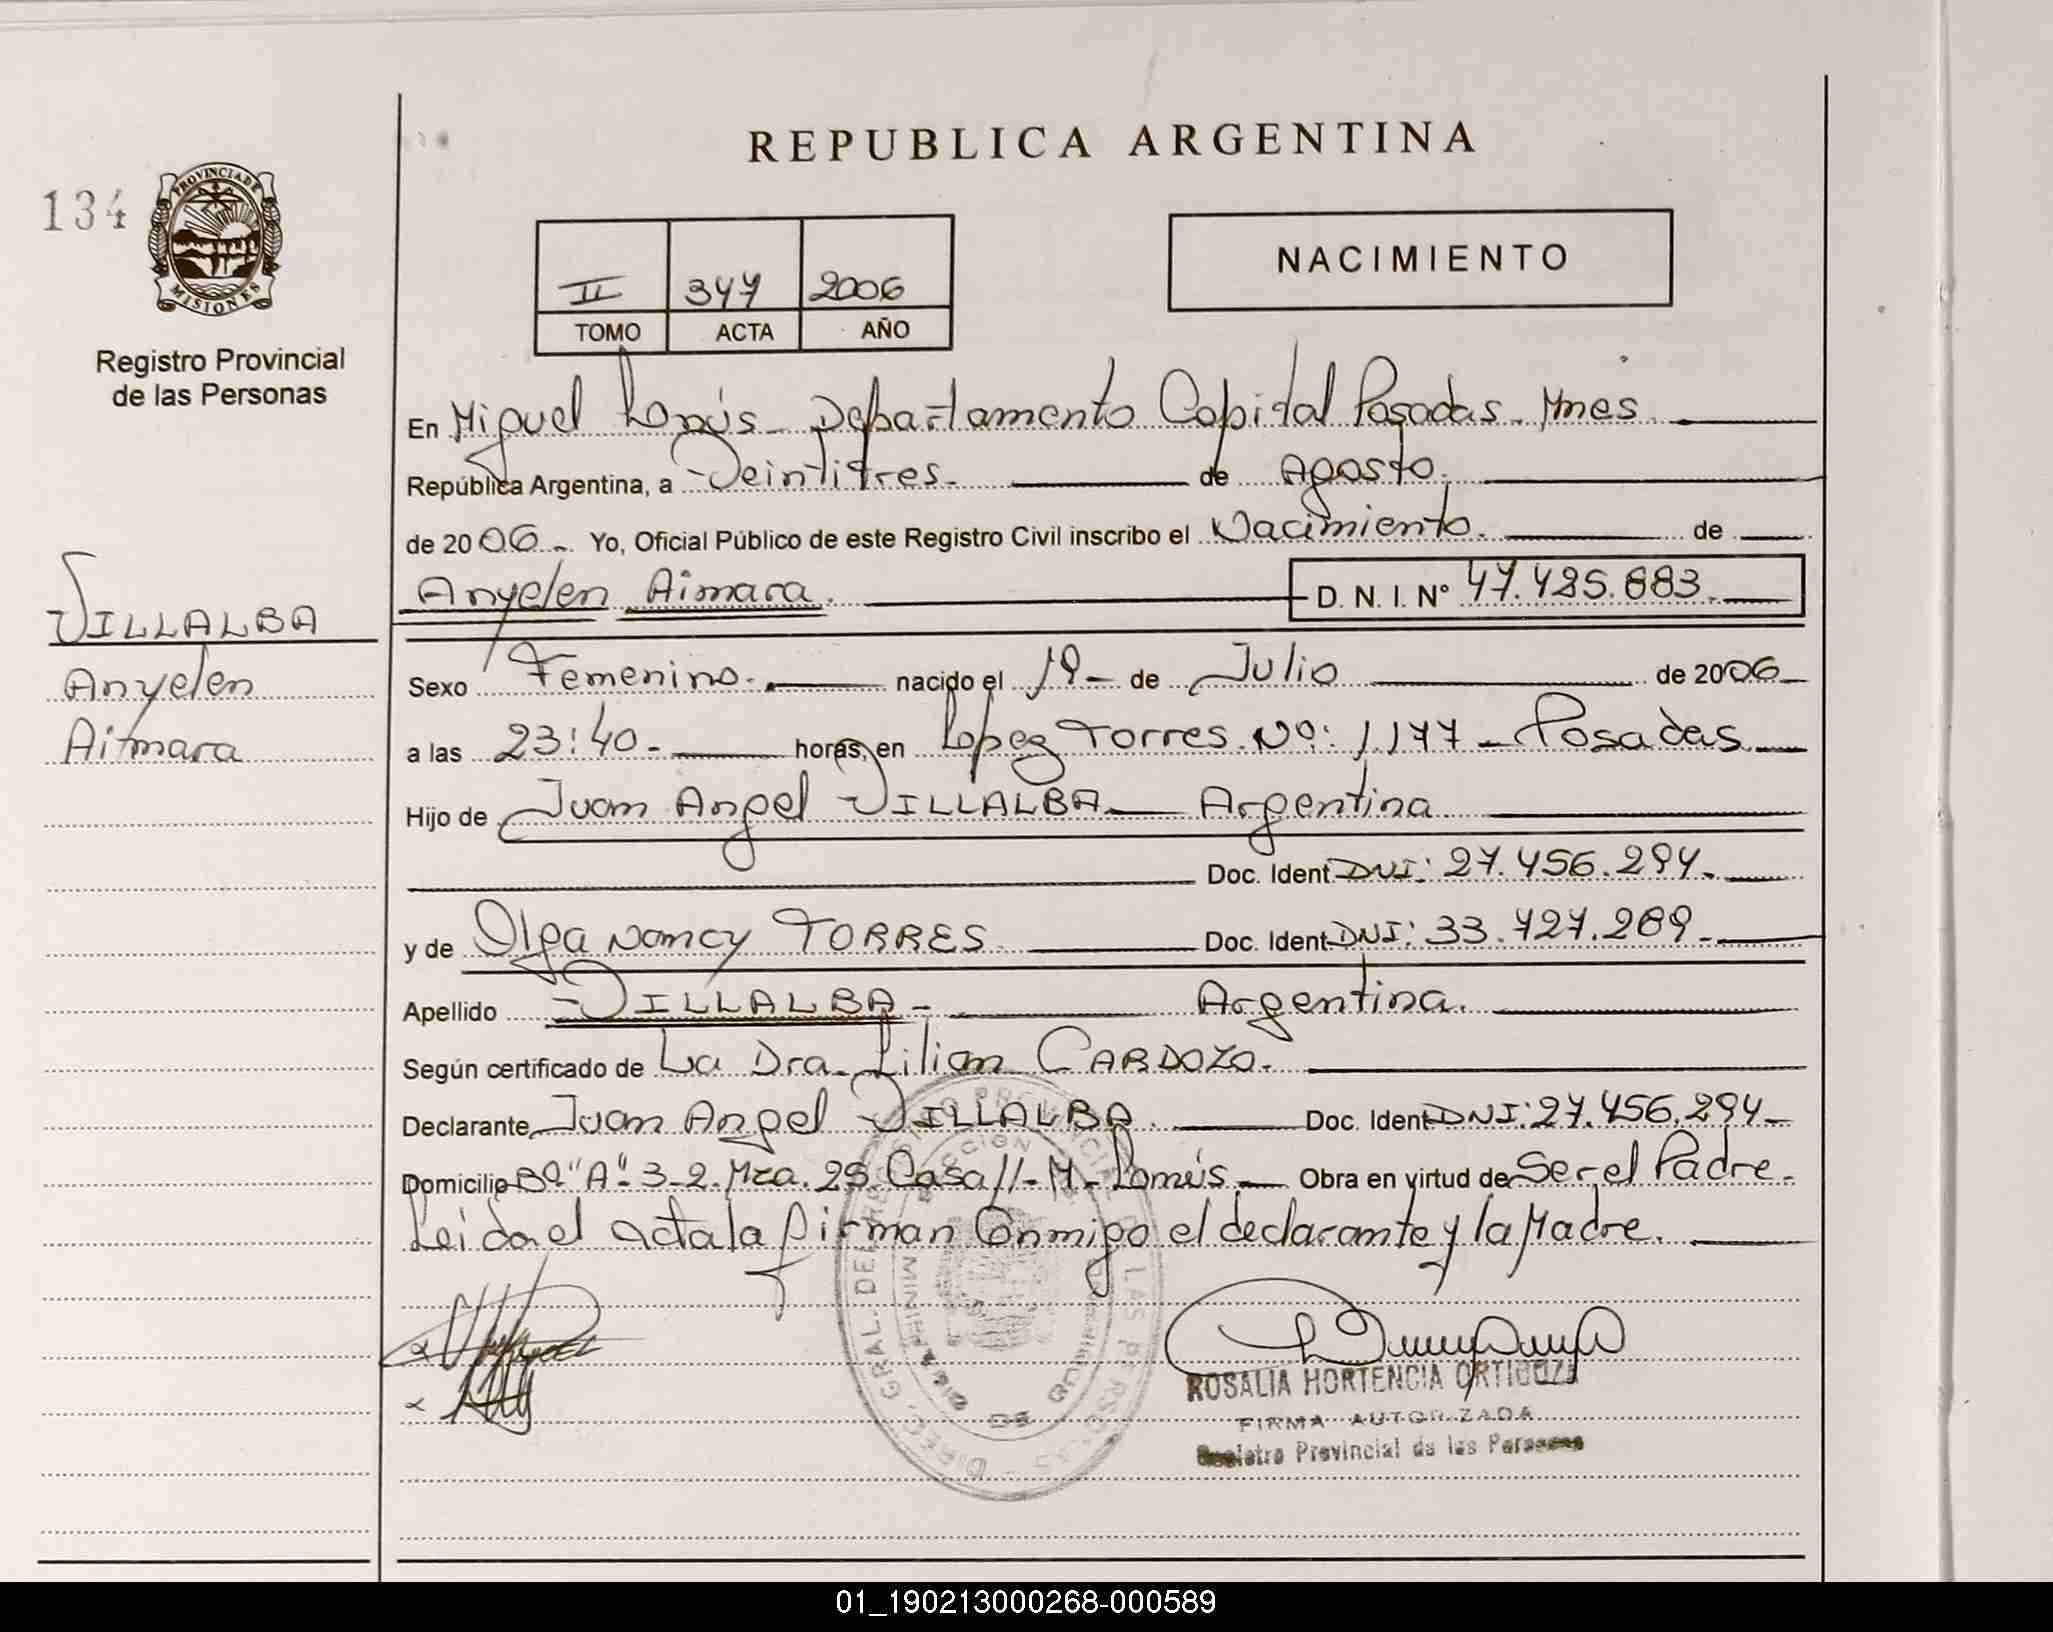 REPUBLICA ARGENTINA
134
PROVINCIA DE
MISIONES
NACIMIENTO
II 347 2006
TOMO ACTA AÑO
Registro Provincial
de las Personas
En Miguel Lanús - Departamento Capital Posadas - Mnes.
República Argentina, a Veintitres. de Agosto.
de 2006. Yo, Oficial Público de este Registro Civil inscribo el Nacimiento. de
Anyelen Aimara. D. N. I. Nº 47.425.683.
VILLALBA
Anyelen
Aimara
Sexo Femenino. nacido el 19 de Julio de 2006
a las 23:40 horas, en Lopez Torres Nº: 1.177 - Posadas
Hijo de Juan Angel VILLALBA Argentina
Doc. Ident. DNI: 27.456.294.
y de Olga Nancy TORRES Doc. Ident. DNI: 33.727.289.
Apellido VILLALBA - Argentina.
Según certificado de La Dra. Lilian CARDOZO.
Declarante Juan Angel VILLALBA. Doc. Ident. DNI: 27.456.294
Domicilio Bº "A" 3-2. Mza. 29 Casa 11 - M. Lanús. Obra en virtud de Ser el Padre.
Leida el acta la firman Conmigo el declarante y la Madre.
ROSALIA HORTENCIA ORTIGOZA
FIRMA AUTORIZADA
Registro Provincial de las Personas
01_190213000268-000589